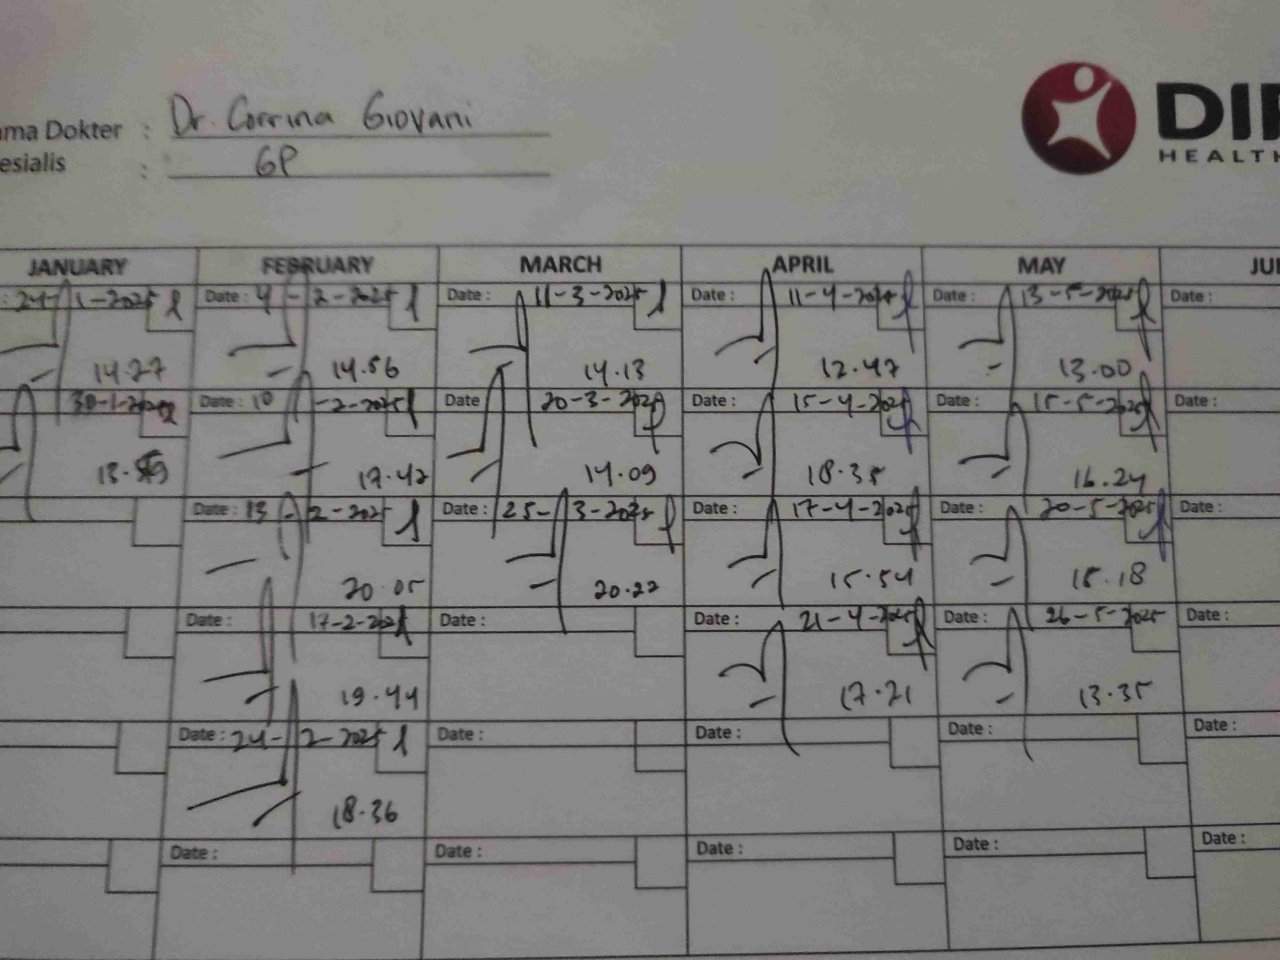 ama Dokter : Dr. Corrina Giovani
esialis : GP
DI
HEALTH
JANUARY FEBRUARY MARCH APRIL MAY JU
: 24-1-2025 Date : 4-2-2025 Date : 11-3-2025 Date : 11-4-2025 Date : 13-5-2025 Date :
14.27 14.56 14.13 12.47 13.00
30-1-2025 Date : 10-2-2025 Date 20-3-2025 Date : 15-4-2025 Date : 15-5-2025 Date :
17.42 14.09 18.35 16.24
Date : 13-2-2025 Date : 25-3-2025 Date : 17-4-2025 Date : 20-5-2025 Date :
20.05 20.22 15.54 15.18
Date : 17-2-2025 Date : Date : 21-4-2025 Date : 26-5-2025 Date :
19.44 17.21 13.35
Date : 24-2-2025 Date : Date : Date : Date :
18.36
Date : Date : Date : Date : Date :